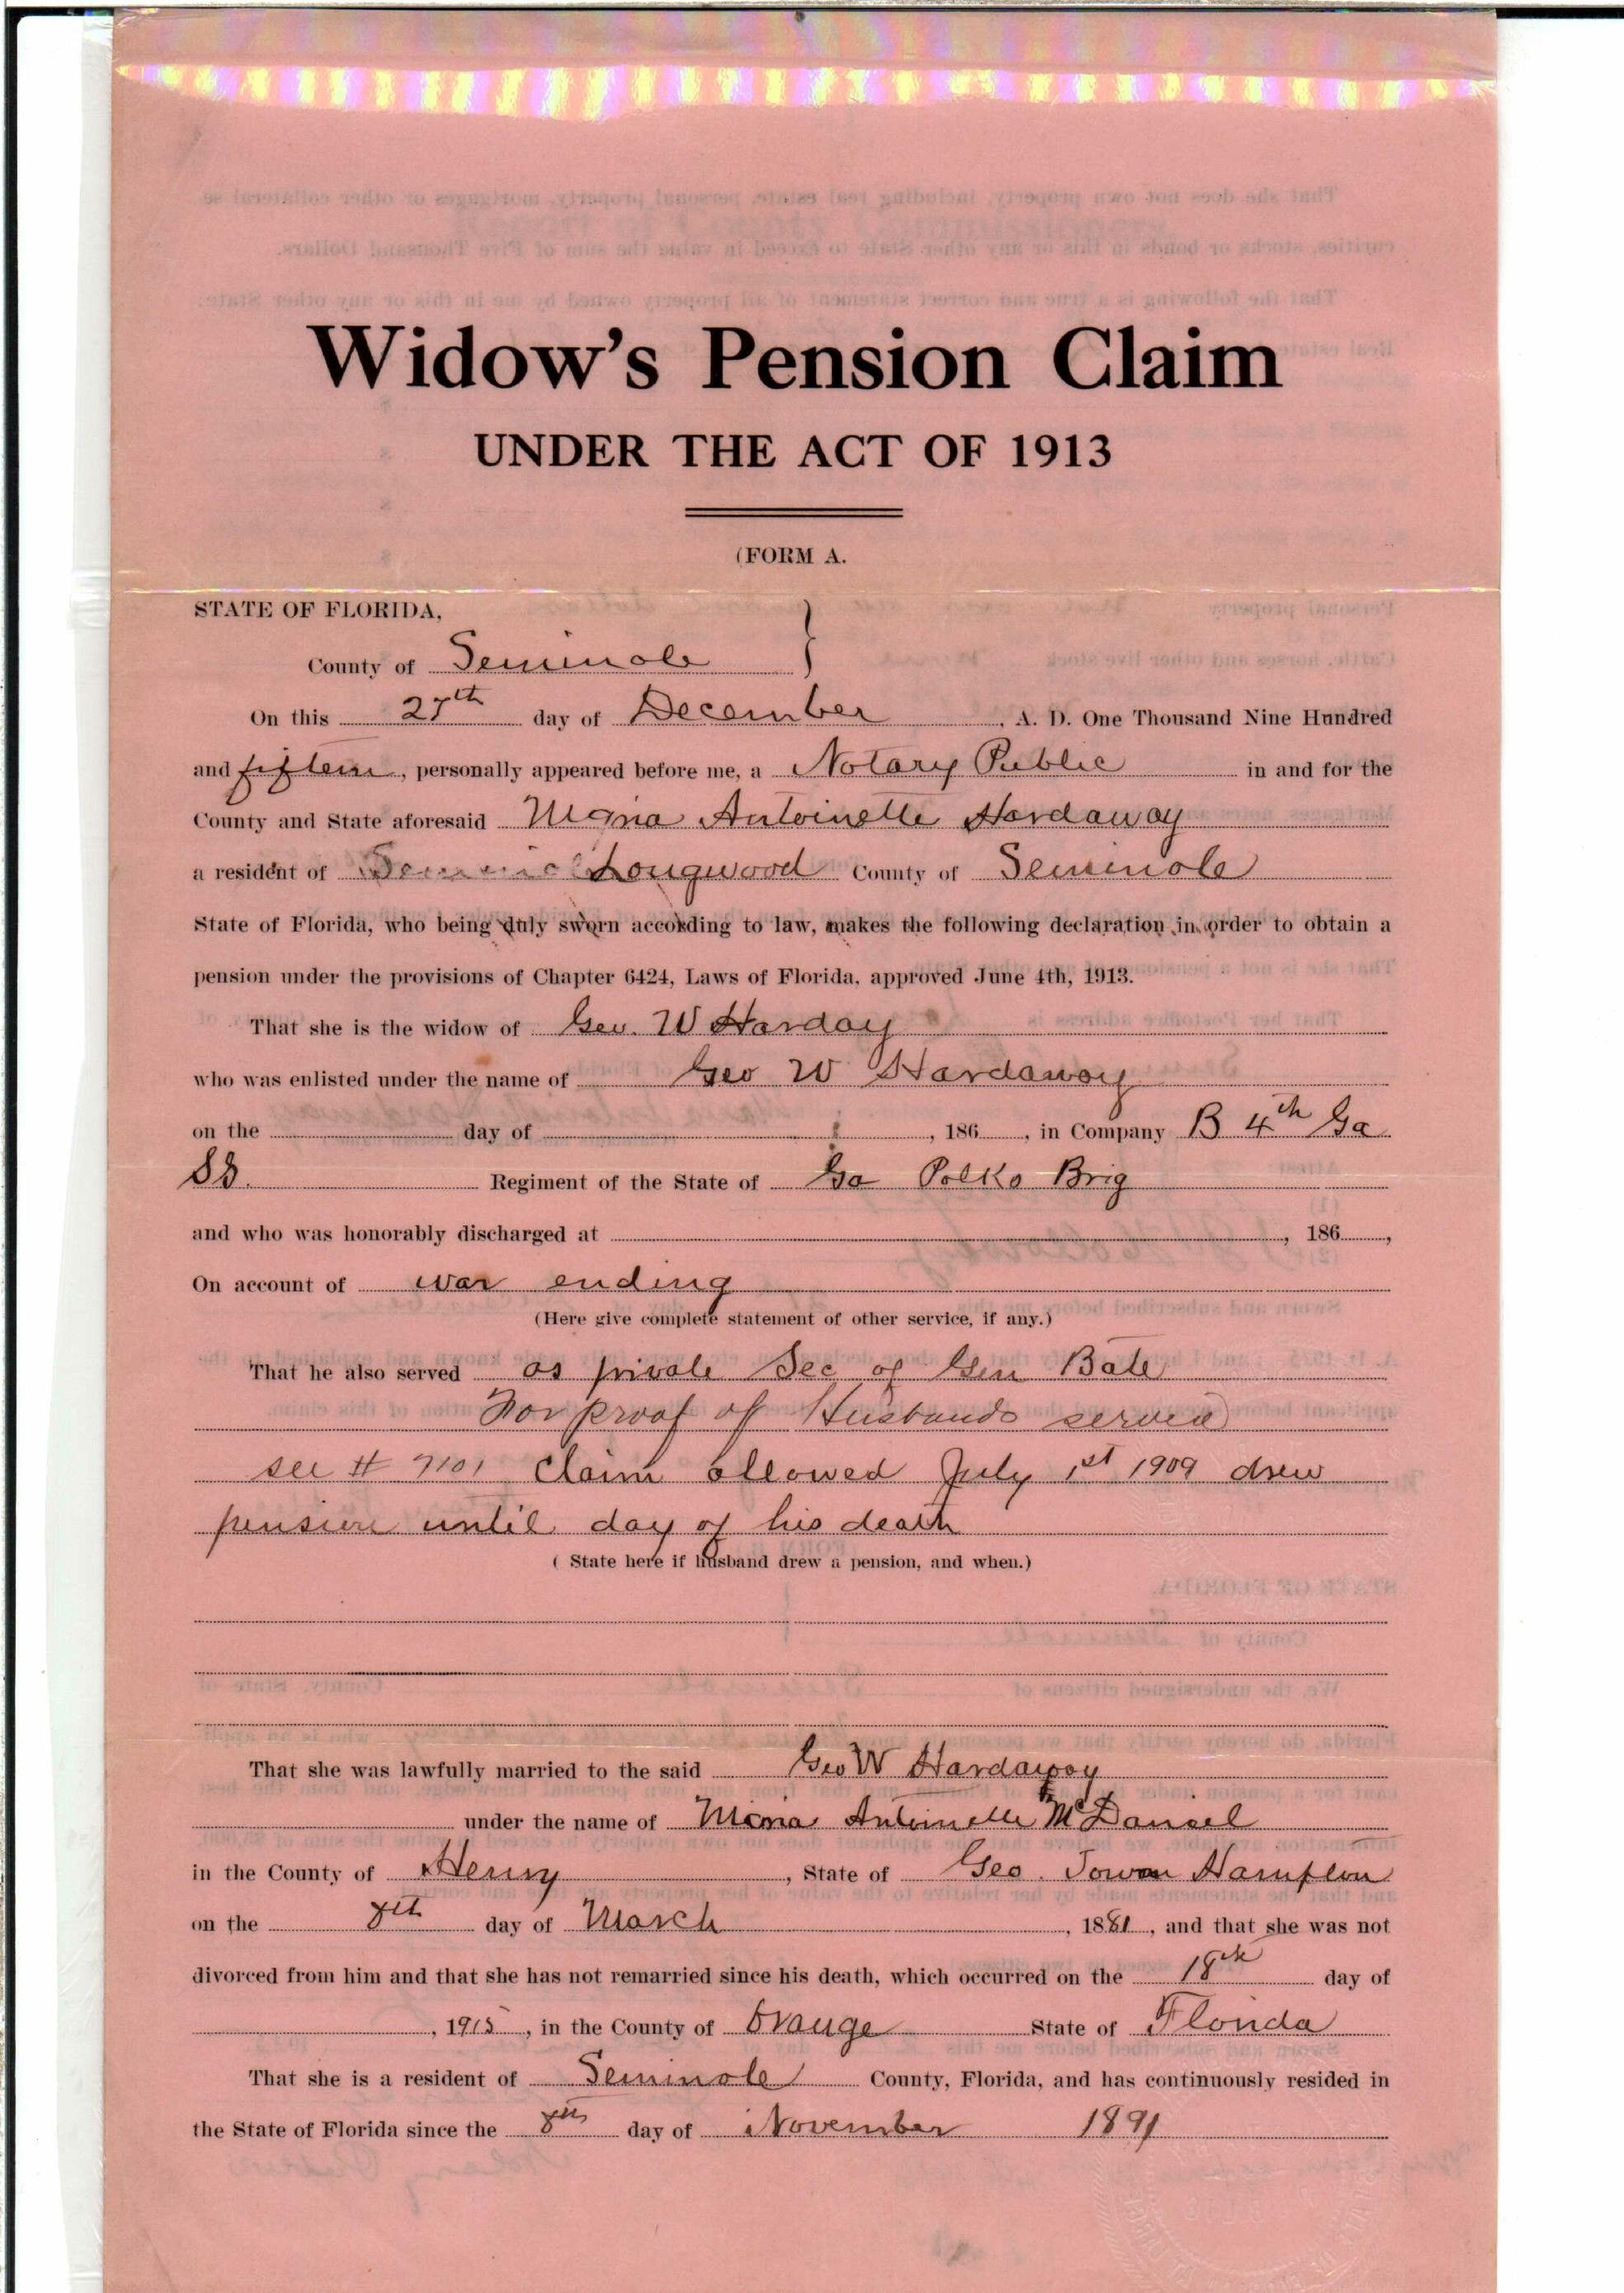 Widow's Pension Claim
UNDER THE ACT OF 1913
(FORM A.
STATE OF FLORIDA,
County of Seminole
On this 27th day of December, A. D. One Thousand Nine Hundred
and fifteen, personally appeared before me, a Notary Public in and for the
County and State aforesaid Antoinette Hardaway
a resident of Longwood County of Seminole
State of Florida, who being duly sworn according to law, makes the following declaration in order to obtain a
pension under the provisions of Chapter 6424, Laws of Florida, approved June 4th, 1913.
That she is the widow of Geo. W Harday
who was enlisted under the name of Geo W Hardaway
on the day of , 186 , in Company B 4th Ga
SS. Regiment of the State of Ga Polks Brig
and who was honorably discharged at , 186 ,
On account of war ending
(Here give complete statement of other service, if any.)
That he also served as private Sec of Gen Bate
For proof of Husbands service
see # 7101 Claim allowed July 1st 1909 drew
pension until day of his death
( State here if husband drew a pension, and when.)
That she was lawfully married to the said Geo W Hardaway
under the name of Antoinette McDaniel
in the County of Henry, State of Geo. Town Hampton
on the 8th day of March, 1881, and that she was not
divorced from him and that she has not remarried since his death, which occurred on the 18th day of
, 1915, in the County of Orange State of Florida
That she is a resident of Seminole County, Florida, and has continuously resided in
the State of Florida since the 8th day of November 1891